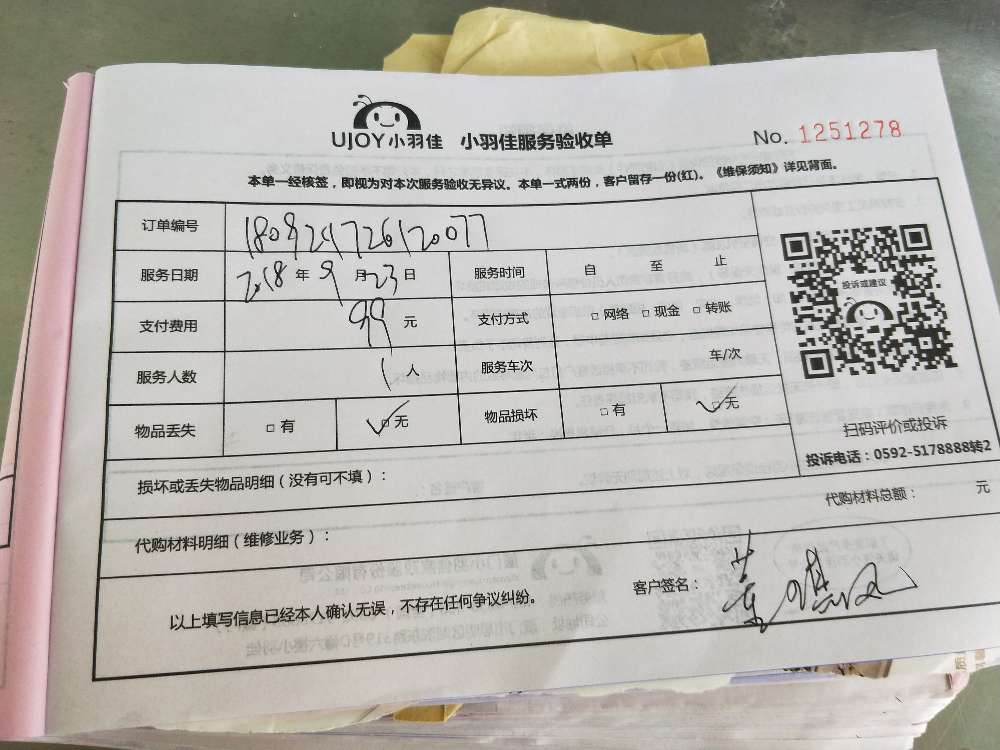 UJOY小羽佳 小羽佳服务验收单 No. 1251278
本单一经核签，即视为对本次服务验收无异议。本单一式两份，客户留存一份(红)。《维保须知》详见背面。
订单编号 1808241726120077
服务日期 2018 年 9 月 23 日 服务时间 自 至 止
支付费用 99 元 支付方式 □ 网络 □ 现金 □ 转账
服务人数 1 人 服务车次 车/次
物品丢失 □ 有 ✓□ 无 物品损坏 □ 有 ✓□ 无
投诉或建议
扫码评价或投诉
投诉电话：0592-5178888转2
损坏或丢失物品明细（没有可不填）：
代购材料明细（维修业务）： 代购材料总额： 元
以上填写信息已经本人确认无误，不存在任何争议纠纷。 客户签名：